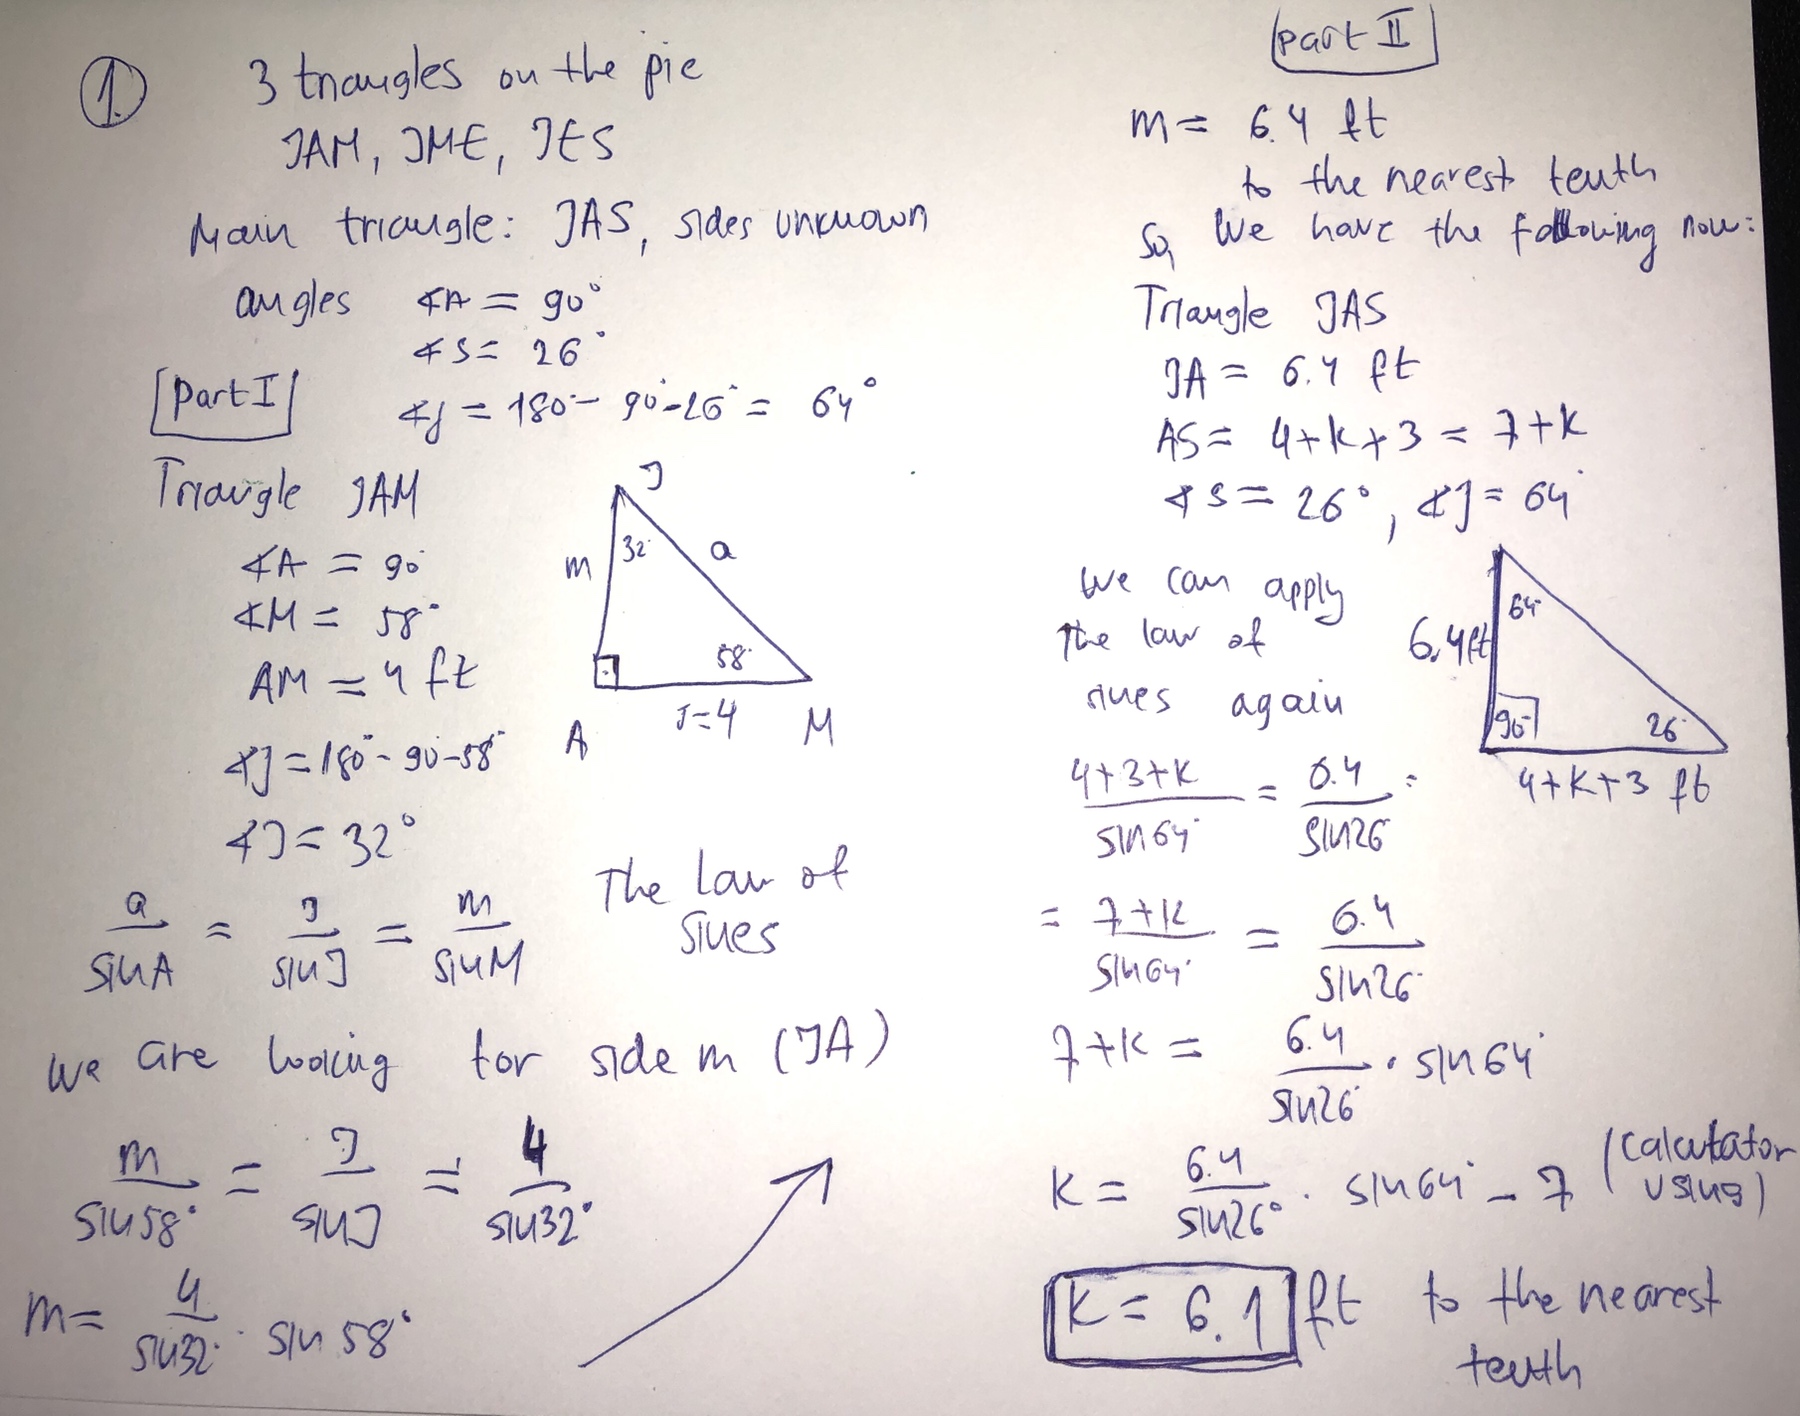 1.
3 triangles on the pie
JAM, JME, JES
Main triangle: JAS, sides unknown
angles ∢A = 90°
∢S = 26°
Part I
∢J = 180° - 90° - 26° = 64°
Triangle JAM
∢A = 90°
∢M = 58°
AM = 4 ft
∢J = 180° - 90° - 58°
∢J = 32°
J
32°
m
a
58°
A
J=4
M
a/sinA = J/sinJ = m/sinM
The law of
sines
We are looking for side m (JA)
m/sin58° = J/sinJ = 4/sin32°
m = 4/sin32° · sin58°
part II
m = 6.4 ft
to the nearest tenth
So, We have the following now:
Triangle JAS
JA = 6.4 ft
AS = 4+k+3 = 7+k
∢S = 26°, ∢J = 64°
We can apply
the law of
sines again
64°
6.4ft
90°
26°
4+k+3 ft
4+3+k/sin64° = 6.4/sin26° =
= 7+k/sin64° = 6.4/sin26°
7+k = 6.4/sin26° · sin64°
k = 6.4/sin26° · sin64° - 7 (calculator
using)
k = 6.1 ft to the nearest
tenth